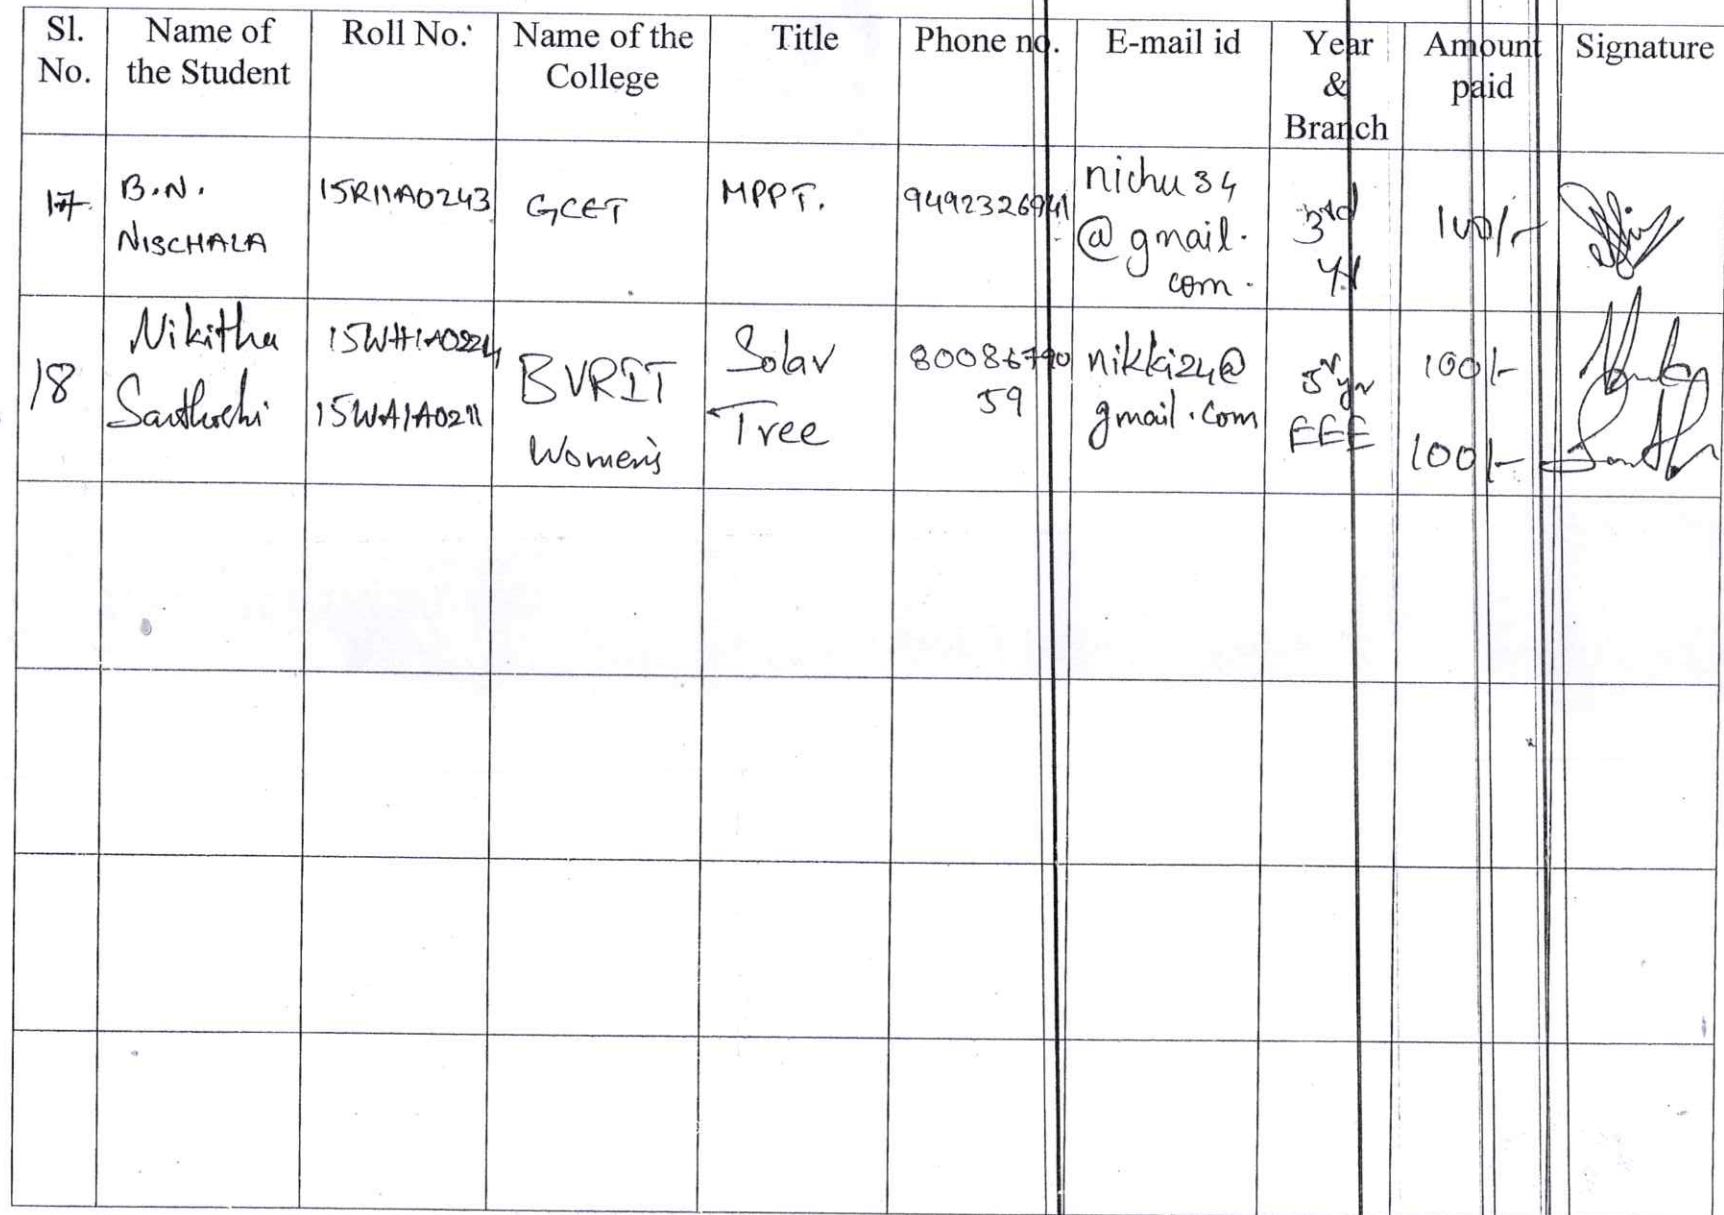 Sl. No.
Name of the Student
Roll No.
Name of the College
Title
Phone no.
E-mail id
Year & Branch
Amount paid
Signature
17
B.N.
NISCHALA
15R11A0243
GCET
MPPT.
9492326941
nichu34
@gmail.
com.
3rd
yr
100/-
18
Nikitha
Santhoshi
15WH1A0224
15WA1A0211
BVRIT
Women's
Solar
Tree
80086790
59
nikki24@
gmail.com
3r yr
EEE
100/-
100/-